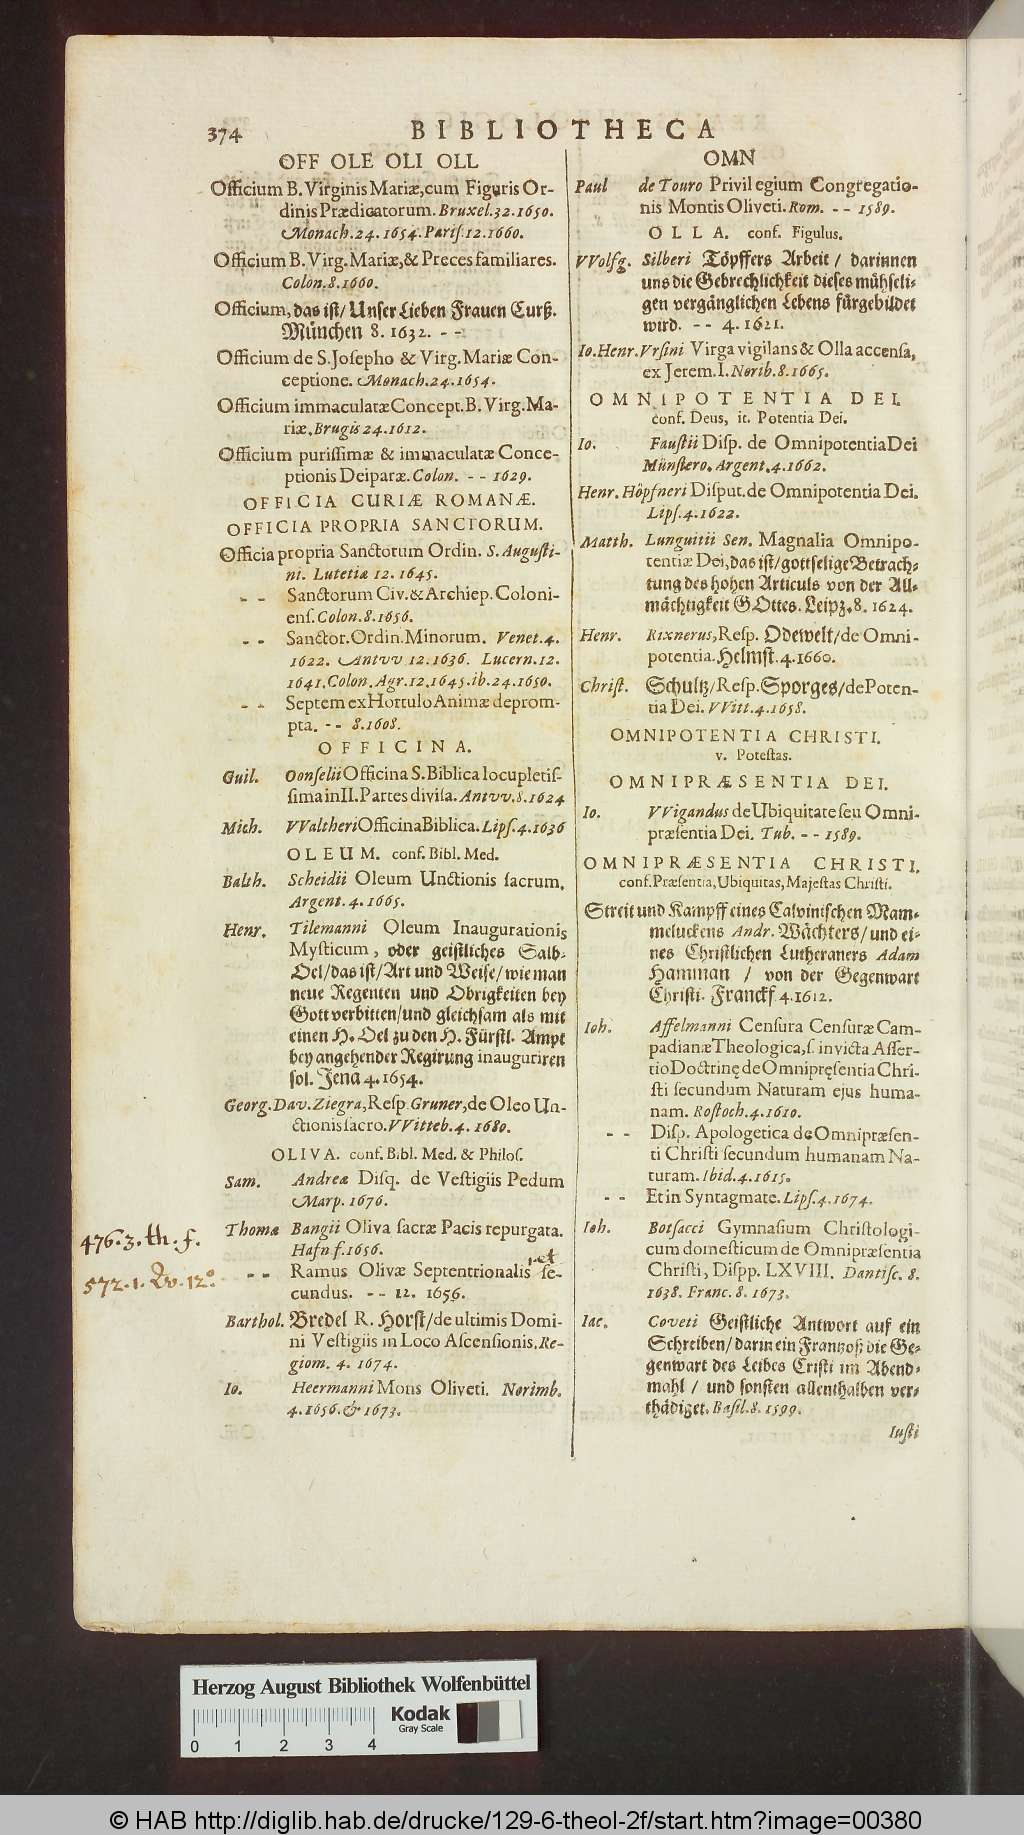 374
BIBLIOTHECA
OFF OLE OLI OLL
Officium B. Virginis Mariæ, cum Figuris Or-
dinis Prædicatorum. Bruxel. 32. 1650.
Monach. 24. 1654. Paris. 12. 1660.
Officium B. Virg. Mariæ, & Preces familiares.
Colon. 8. 1660.
Officium, das ist/ Unser Lieben Frauen Curß.
München 8. 1632. - -
Officium de S. Josepho & Virg. Mariæ Con-
ceptione. Monach. 24. 1654.
Officium immaculatæ Concept. B. Virg. Ma-
riæ, Brugis 24. 1612.
Officium purissimæ & immaculatæ Conce-
ptionis Deiparæ. Colon. - - 1629.
OFFICIA CURIÆ ROMANÆ.
OFFICIA PROPRIA SANCTORUM.
Officia propria Sanctorum Ordin. S. Augusti-
ni. Lutetiæ 12. 1645.
- - Sanctorum Civ. & Archiep. Coloni-
ens. Colon. 8. 1656.
- - Sanctor. Ordin. Minorum. Venet. 4.
1622. Antvv 12. 1636. Lucern. 12.
1641. Colon. Agr. 12. 1645. ib. 24. 1650.
- - Septem ex Hortulo Animæ deprom-
pta. - - 8. 1608.
OFFICINA.
Guil. Oonselii Officina S. Biblica locupletis-
sima in II. Partes divisa. Antvv. 8. 1624
Mich. VValtheri Officina Biblica. Lips. 4. 1636
OLEUM. conf. Bibl. Med.
Balth. Scheidii Oleum Unctionis sacrum.
Argent. 4. 1665.
Henr. Tilemanni Oleum Inaugurationis
Mysticum, oder geistliches Salb-
Oel/ das ist/ Art und Weise/ wie man
neue Regenten und Obrigkeiten bey
Gott verbitten/ und gleichsam als mit
einen H. Oel zu den H. Fürstl. Ampt
bey angehender Regirung inauguriren
sol. Jena 4. 1654.
Georg. Dav. Ziegra, Resp. Gruner, de Oleo Un-
ctionis sacro. VVitteb. 4. 1680.
OLIVA. conf. Bibl. Med. & Philos.
Sam. Andreæ Disq. de Vestigiis Pedum
Marp. 1676.
476. 3. th. f.
Thomæ Bangii Oliva sacræ Pacis repurgata.
Hafn f. 1656.
572. 1. Qv. 12º.
- - Ramus Olivæ Septentrionalis 1. et se-
cundus. - - 12. 1656.
Barthol. Bredel R. Horst/ de ultimis Domi-
ni Vestigiis in Loco Ascensionis. Re-
giom. 4. 1674.
Io. Heermanni Mons Oliveti. Norimb.
4. 1656. & 1673.
OMN
Paul de Touro Privilegium Congregatio-
nis Montis Oliveti. Rom. - - 1589.
OLLA. conf. Figulus.
VVolfg. Silberi Töpffers Arbeit / darinnen
uns die Gebrechlichkeit dieses mühseli-
gen vergänglichen Lebens fürgebildet
wird. - - 4. 1621.
Io. Henr. Vrsini Virga vigilans & Olla accensa,
ex Jerem. I. Norib. 8. 1665.
OMNIPOTENTIA DEI.
conf. Deus, it. Potentia Dei.
Io. Faustii Disp. de Omnipotentia Dei
Münstero. Argent. 4. 1662.
Henr. Höpfneri Disput. de Omnipotentia Dei.
Lips. 4. 1622.
Matth. Lunguitii Sen. Magnalia Omnipo-
tentiæ Dei, das ist/ gottselige Betrach-
tung des hohen Articuls von der All-
mächtigkeit GOttes. Leipz. 8. 1624.
Henr. Rixnerus, Resp. Odewelt/ de Omni-
potentia. Helmst. 4. 1660.
Christ. Schultz/ Resp. Sporges/ de Poten-
tia Dei. VVitt. 4. 1658.
OMNIPOTENTIA CHRISTI.
v. Potestas.
OMNIPRÆSENTIA DEI.
Io. VVigandus de Ubiquitate seu Omni-
præsentia Dei. Tub. - - 1589.
OMNIPRÆSENTIA CHRISTI.
conf. Præsentia, Ubiquitas, Majestas Christi.
Streit und Kampff eines Calvinischen Mam-
meluckens Andr. Wächters/ und ei-
nes Christlichen Lutheraners Adam
Hamman / von der Gegenwart
Christi. Franckf 4. 1612.
Ioh. Affelmanni Censura Censuræ Cam-
padianæ Theologica, s. invicta Asser-
tio Doctrinę de Omnipręsentia Chri-
sti secundum Naturam ejus huma-
nam. Rostoch. 4. 1610.
- - Disp. Apologetica de Omnipræsen-
ti Christi secundum humanam Na-
turam. Ibid. 4. 1615.
- - Et in Syntagmate. Lips. 4. 1674.
Ioh. Botsacci Gymnasium Christologi-
cum domesticum de Omnipræsentia
Christi, Dispp. LXVIII. Dantisc. 8.
1638. Franc. 8. 1673.
Iac. Coveti Geistliche Antwort auf ein
Schreiben/ darin ein Frantzoß die Ge-
genwart des Leibes Cristi im Abend-
mahl / und sonsten allenthalben ver-
thädiget. Basil. 8. 1599.
Iusti
Herzog August Bibliothek Wolfenbüttel
Kodak
Gray Scale
0 1 2 3 4
© HAB http://diglib.hab.de/drucke/129-6-theol-2f/start.htm?image=00380